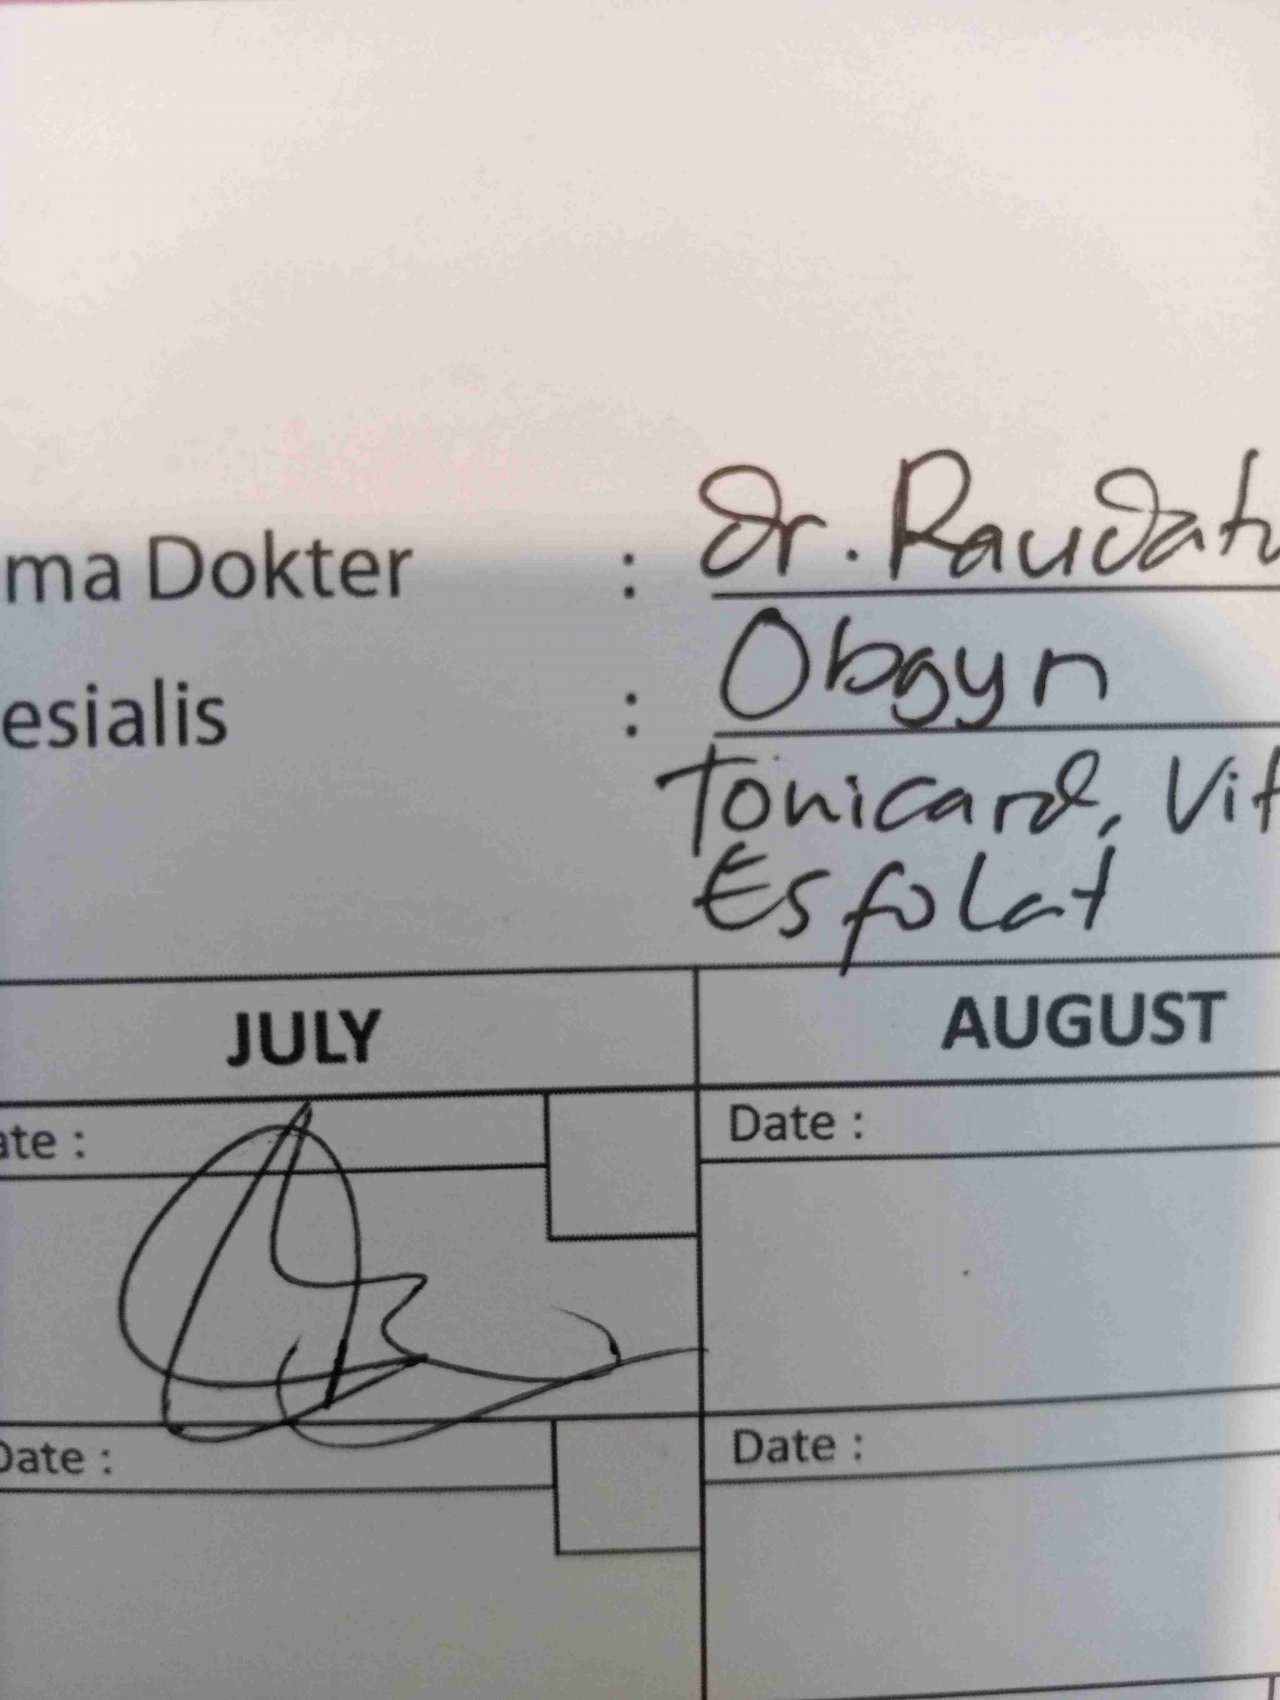 ma Dokter : dr. Raudatu
esialis : Obgyn
Tonicard, Vit
Esfolat
JULY AUGUST
ate : Date :
Date : Date :